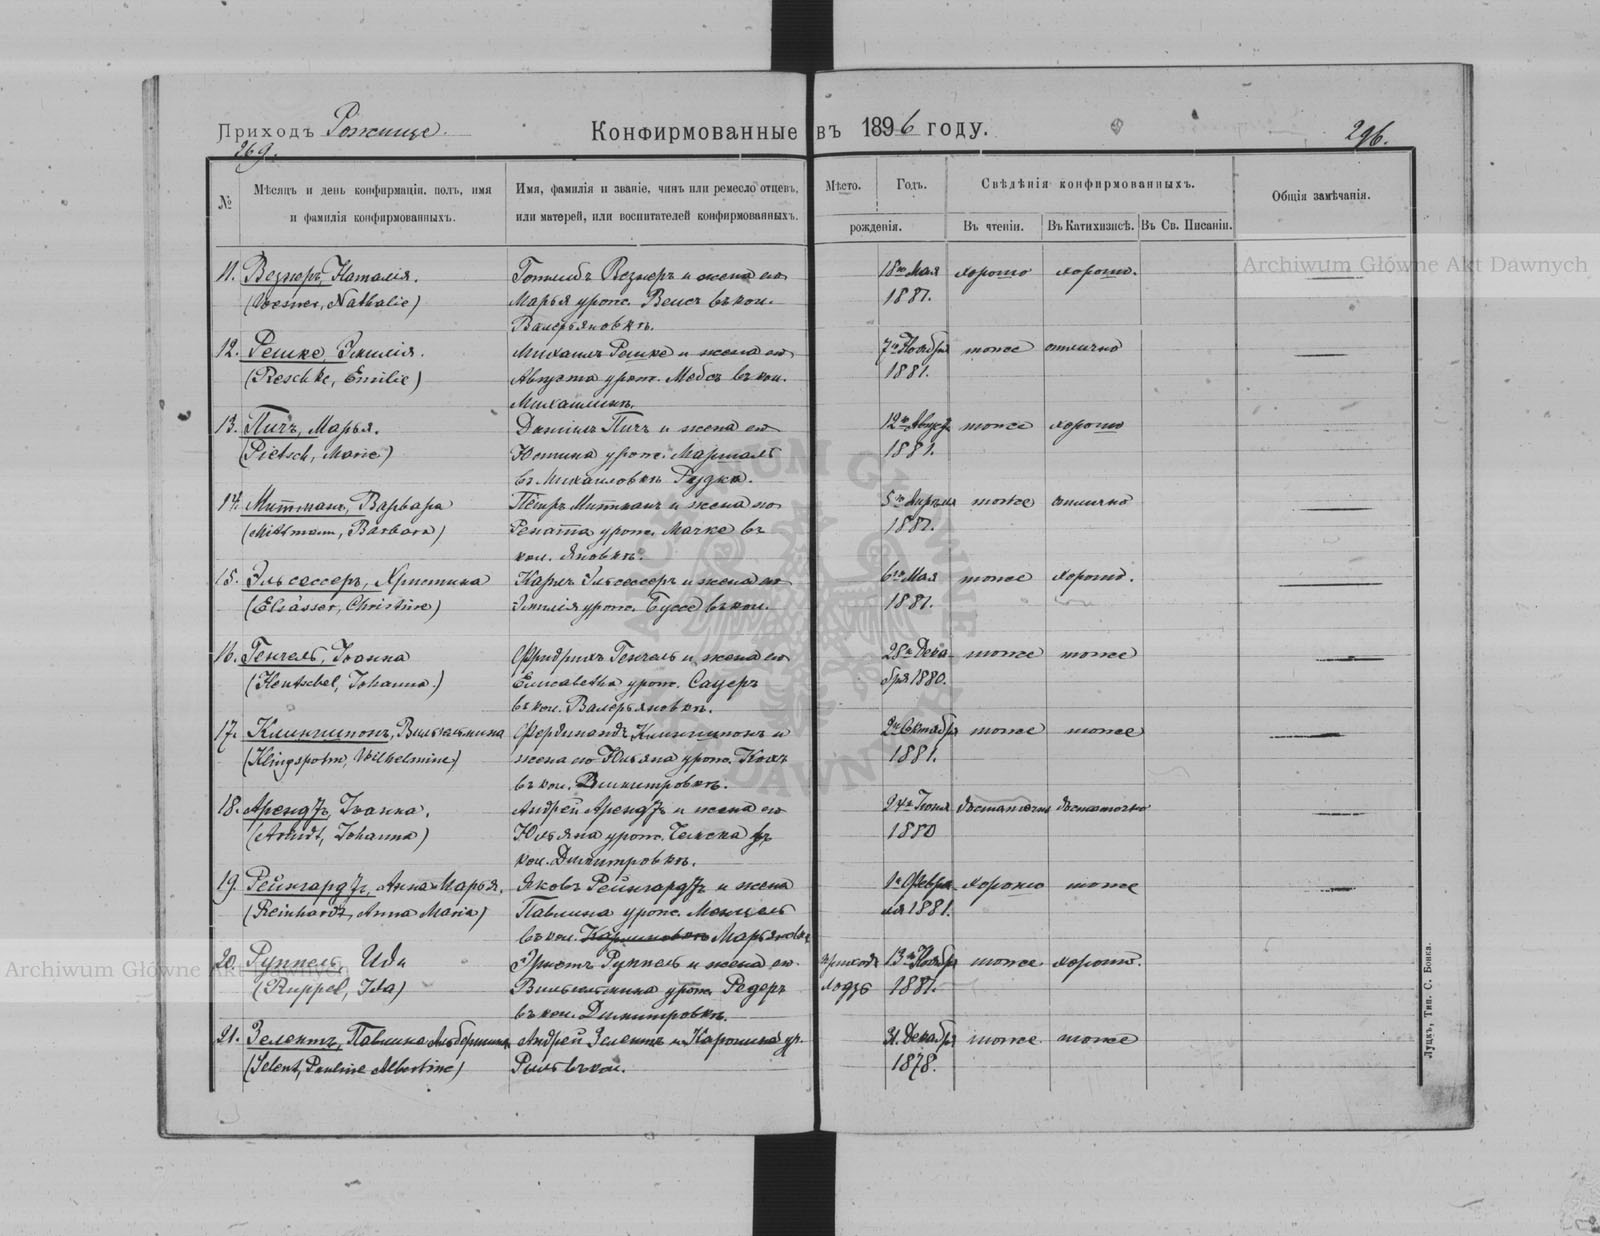 Приходъ Рожище.
Конфирмованные въ 1896 году.
269.
296.
№
Мѣсяцъ и день конфирмаціи, полъ, имя и фамилія конфирмованныхъ.
Имя, фамилія и званіе, чинъ или ремесло отцевъ, или матерей, или воспитателей конфирмованныхъ.
Мѣсто.
Годъ.
рожденія.
Свѣдѣнія конфирмованныхъ.
Въ чтеніи.
Въ Катихизисѣ.
Въ Св. Писаніи.
Общія замѣчанія.
11. Везнеръ, Наталія. Готлибъ Везнеръ и жена его 18го Мая хорошо хорошо.
(Wesner, Nathalie) Марья урож. Вейсъ въ кол. 1881.
Валерьяновкѣ.
12. Решке, Эмилія. Михаилъ Решке и жена его 7го Ноября тоже отлично
(Reschke, Emilie) Августа урож. въ кол. 1881.
Михайлинъ.
13. Пичъ, Марья. Даніилъ Пичъ и жена его 12го тоже хорошо
(Pietsch, Marie) Юстина урож. 1881.
въ Михаиловкѣ Рудка.
14. Митманъ, Варвара Петръ Митманъ и жена его 5го Апрѣля тоже отлично
(Mittmann, Barbara) Рената урож. Мачке въ 1881.
кол. Яновкѣ.
15. Эльсессеръ, Христина Карлъ Эльсессеръ и жена его 6го Мая тоже хорошо.
(Elsässer, Christine) Эмилія урож. Буссе въ кол. 1881.
16. Генчель, Іоанна Фридрихъ Генчель и жена его 28го Дека- тоже тоже
(Hentschel, Johanna.) Елисавета урож. Сауеръ бря 1880.
въ кол. Валерьяновкѣ.
17. Клингшпонъ, Вильгельмина Фердинандъ Клингшпонъ и 2го Октября тоже тоже
(Klingspohn, Wilhelmine) жена его Юльяна урож. Кохъ 1881.
въ кол. Димитровкѣ.
18. Арендтъ, Іоанна. Андрей Арендтъ и жена его 24го Іюня достаточно достаточно
(Arndt, Johanna) Юльяна урож. въ 1880
кол. Димитровкѣ.
19. Рейнгардтъ, Анна Марья. Яковъ Рейнгардтъ и жена 1го Февра- хорошо тоже
(Reinhardt, Anna Maria) Павлина урож. Менцель ля 1881.
въ кол. Марьяновкѣ
20. Руппель, Ида Эрнстъ Руппель и жена его приходъ 13го Ноября тоже хорошо.
(Ruppel, Ida) Вильгельмина урож. Редеръ Лодзь 1881.
въ кол. Димитровкѣ.
21. Зелентъ, Павлина Альбертина Андрей Зелентъ и Каролина ур. 31. Декабря тоже тоже
(Selent, Pauline Albertine) въ кол. 1878.
Луцкъ, Тип. С. Бокса.
Archiwum Główne Akt Dawnych
Archiwum Główne Akt Dawnych
ARCHIWUM GŁÓWNE AKT DAWNYCH